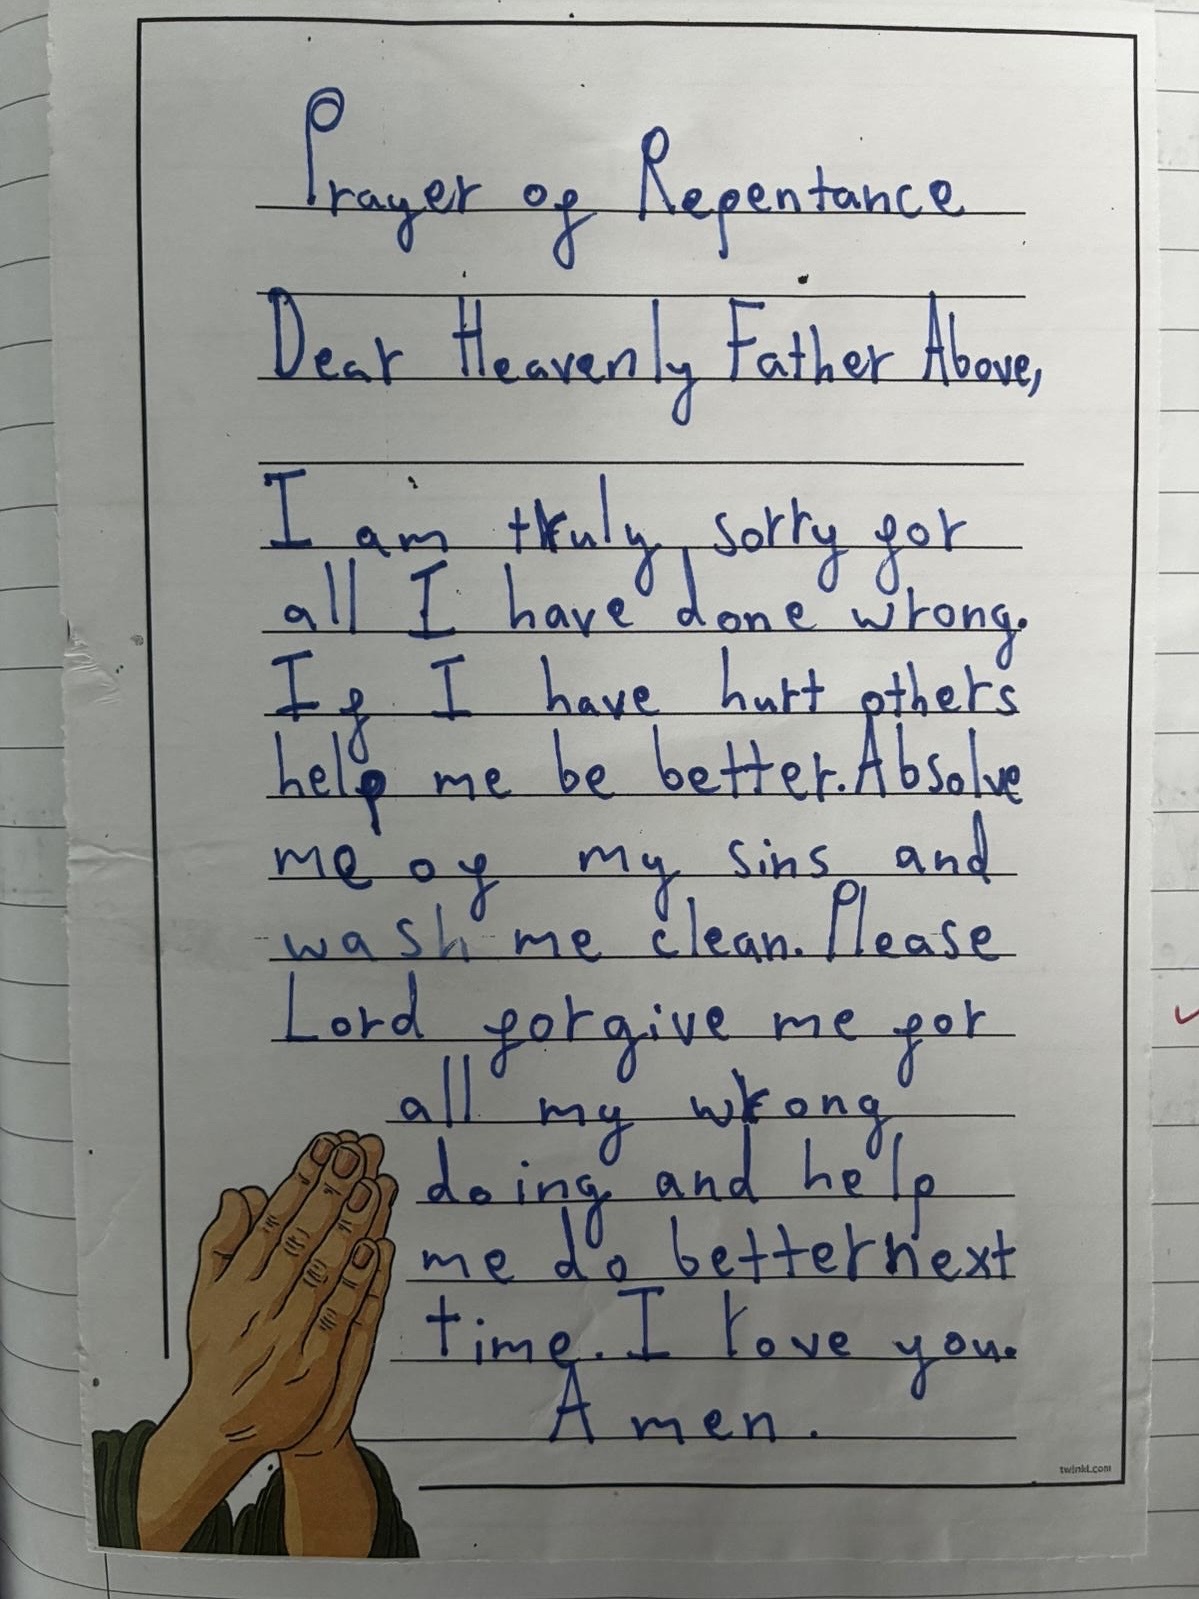 Prayer of Repentance
Dear Heavenly Father Above,
I am truly sorry for
all I have done wrong.
If I have hurt others
help me be better. Absolve
me of my sins and
wash me clean. Please
Lord forgive me for
all my wrong
doing and help
me do better next
time. I love you.
Amen.
twinkl.com